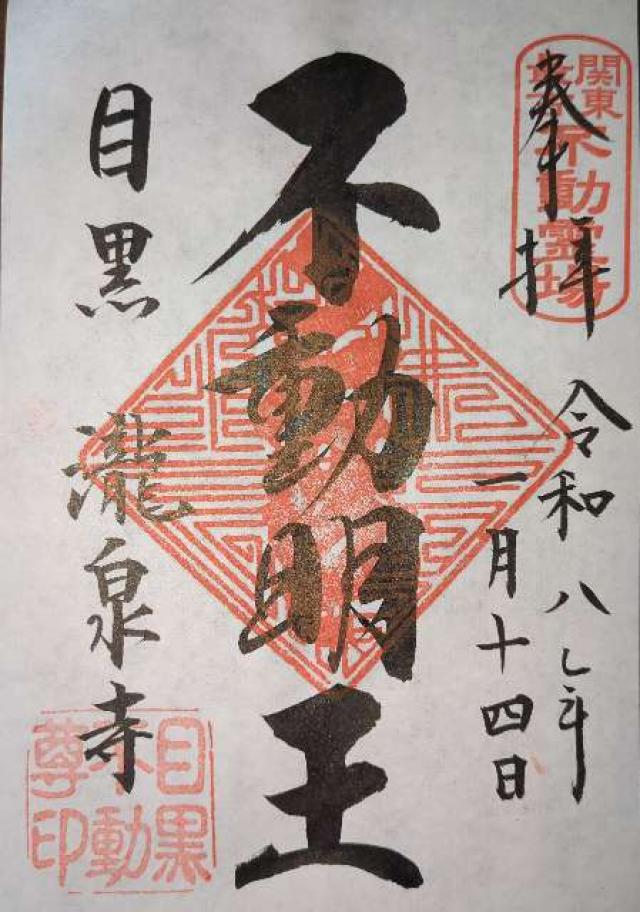 奉拝
令和八年
一月十四日
不動明王
目黒 瀧泉寺
関東
不動霊場
目黒
不動
尊印